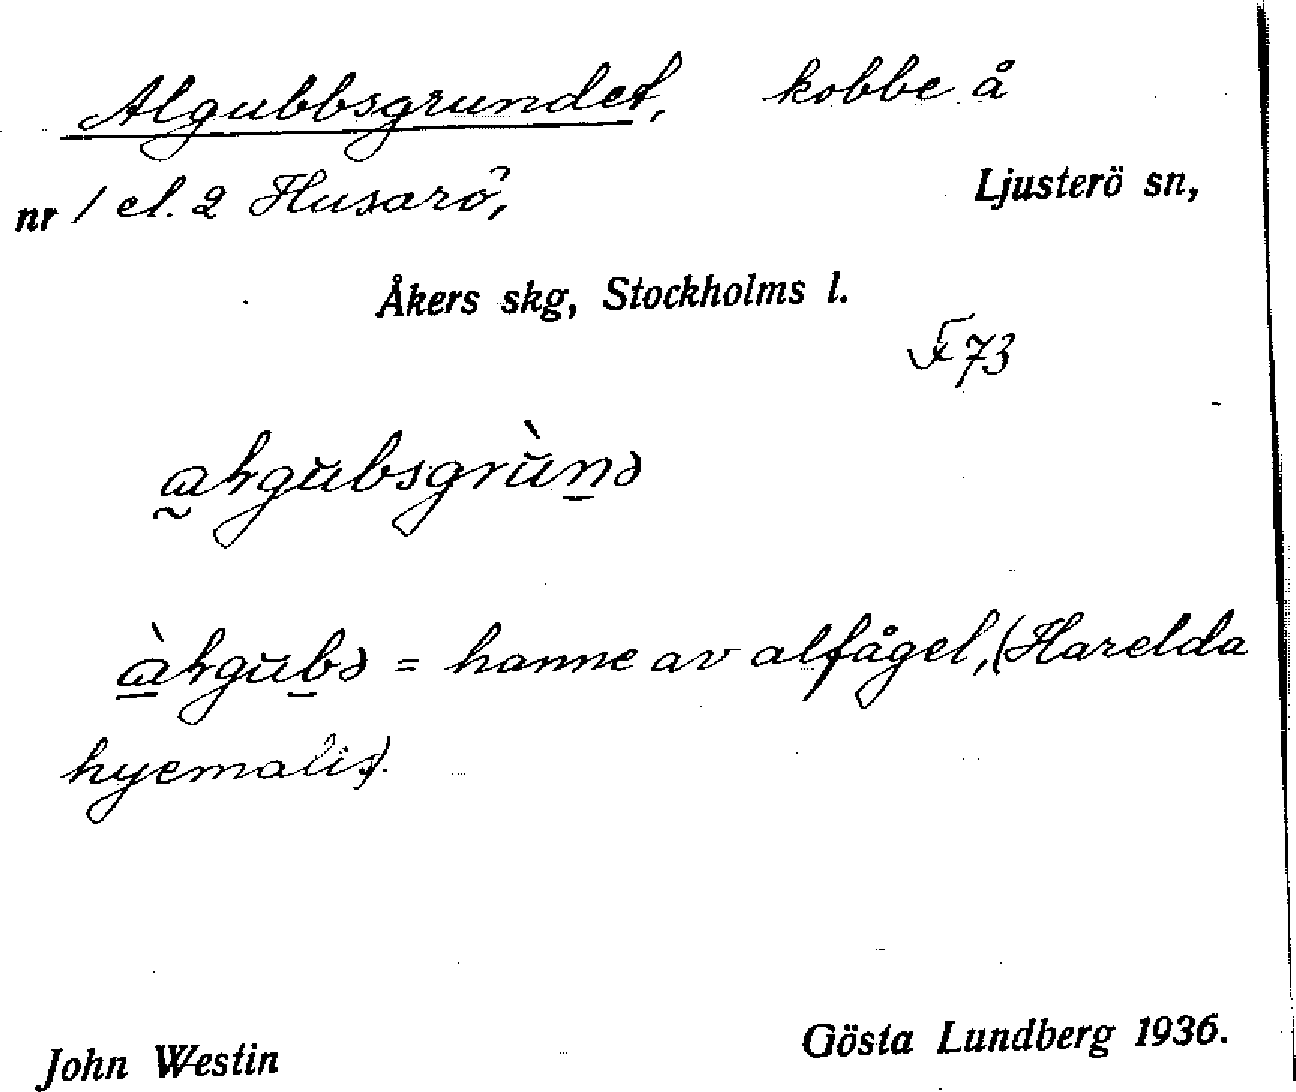 Algubbsgrundet, kobbe å
nr 1 el. 2 Husarö, Ljusterö sn,
Åkers skg, Stockholms l.
F 73
= hanne av alfågel, (Harelda
hyemalis).
John Westin Gösta Lundberg 1936.